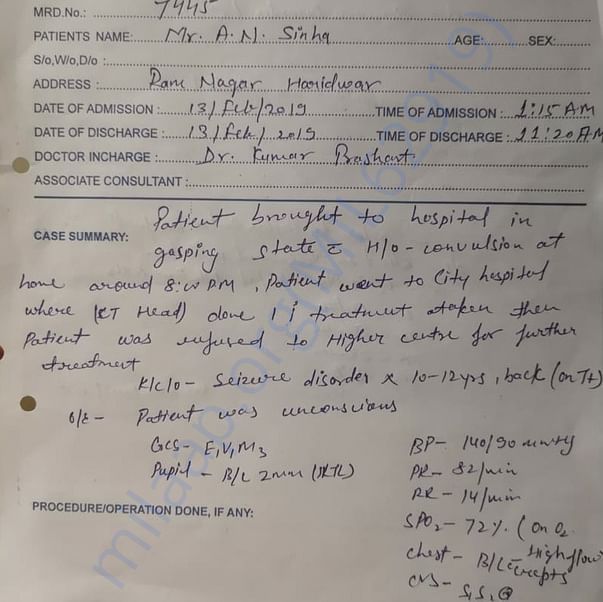 MRD.No.: 7445
PATIENTS NAME: Mr. A. N. Sinha AGE: SEX:
S/o,W/o,D/o :
ADDRESS : Ram Nagar Haridwar
DATE OF ADMISSION : 13/Feb/2019 TIME OF ADMISSION : 1:15 AM
DATE OF DISCHARGE : 13/Feb/2019 TIME OF DISCHARGE : 11:20 AM
DOCTOR INCHARGE : Dr. Kumar Prashant
ASSOCIATE CONSULTANT :
CASE SUMMARY: Patient brought to hospital in
gasping state c̄ H/o - convulsion at
home around 8:00 PM, Patient went to City hospital
where (CT Head) done treatment taken then
Patient was refused to Higher centre for further
treatment
K/c/o - Seizure disorder x 10-12yrs, back (on Tt)
O/E - Patient was unconscious
GCS - E₁V₁M₃
Pupil - B/L 2mm
BP - 140/90 mmHg
PR - 82/min
RR - 14/min
PROCEDURE/OPERATION DONE, IF ANY:
SPO₂ - 72% (on O₂
High flow
Chest - B/L crepts
CVS - S₁S₂
milaap.org